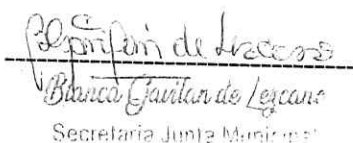 de Lezcano
Blanca Gavilan de Lezcano
Secretaria Junta Municipal